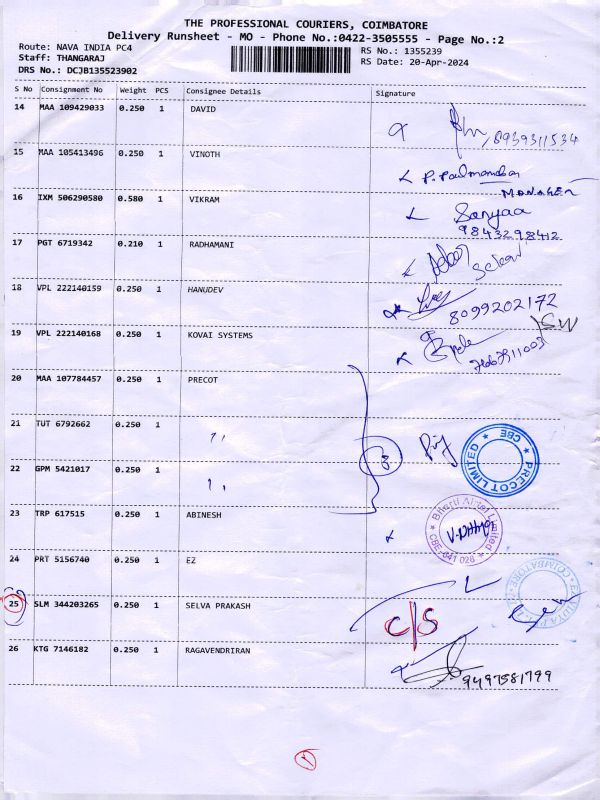 THE PROFESSIONAL COURIERS, COIMBATORE
Delivery Runsheet - MO - Phone No.:0422-3505555 - Page No.:2
Route: NAVA INDIA PC4
Staff: THANGARAJ
DRS No.: DCJB135523902
RS No.: 1355239
RS Date: 20-Apr-2024
S No Consignment No Weight PCS Consignee Details Signature
14 MAA 109429033 0.250 1 DAVID
8939311534
15 MAA 105413496 0.250 1 VINOTH
MANAGER
16 IXM 506290580 0.580 1 VIKRAM
Sanyaa
9843298412
17 PGT 6719342 0.210 1 RADHAMANI
18 VPL 222140159 0.250 1 HANUDEV
8099202172
19 VPL 222140168 0.250 1 KOVAI SYSTEMS
20 MAA 107784457 0.250 1 PRECOT
21 TUT 6792662 0.250 1 ,,
22 GPM 5421017 0.250 1 ,,
3
PRECOT LIMITED
CBE
23 TRP 617515 0.250 1 ABINESH
Bharti Airtel Limited
CBE-641 028
24 PRT 5156740 0.250 1 EZ
COIMBATORE
25 SLM 344203265 0.250 1 SELVA PRAKASH
C/S
26 KTG 7146182 0.250 1 RAGAVENDRIRAN
9497581799